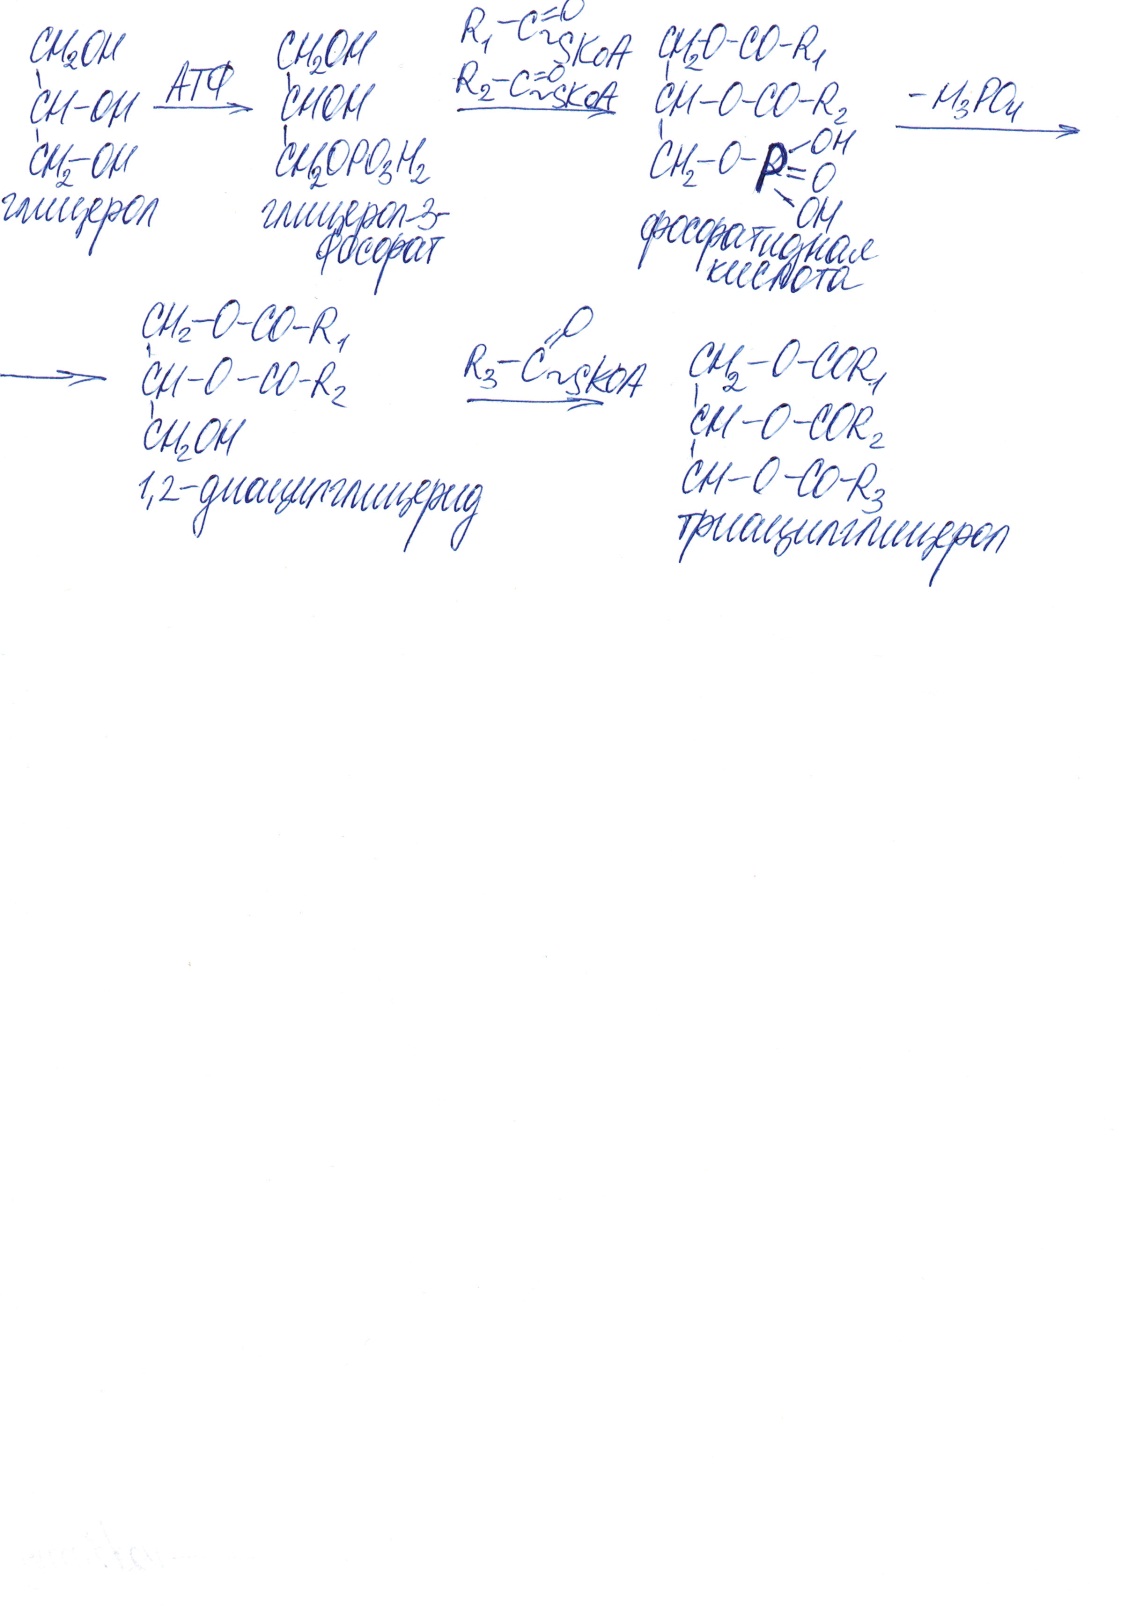 CH₂OH
CH-OH
CH₂-OH
глицерол
АТФ
CH₂OH
CHOH
CH₂OPO₃H₂
глицерол-3-
фосфат
R₁-C=O
~SKoA
R₂-C=O
~SKoA
CH₂O-CO-R₁
CH-O-CO-R₂
CH₂-O-P-OH
=O
-OH
фосфатидная
кислота
-H₃PO₄
CH₂-O-CO-R₁
CH-O-CO-R₂
CH₂OH
1,2-диацилглицерид
R₃-C=O
~SKOA
CH₂-O-COR₁
CH-O-COR₂
CH-O-CO-R₃
триацилглицерол